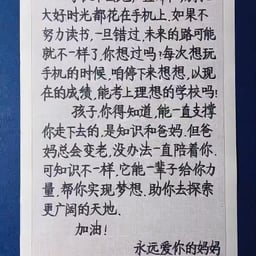 大好时光都花在手机上.如果不
努力读书,一旦错过,未来的路可能
就不一样了,你想过吗?每次想玩
手机的时候,咱停下来想想,以现
在的成绩,能考上理想的学校吗!
孩子,你得知道,能一直支撑
你走下去的,是知识和爸妈.但爸
妈总会变老,没办法一直陪着你.
可知识不一样,它能一辈子给你力
量,帮你实现梦想.助你去探索
更广阔的天地.
加油!
永远爱你的妈妈